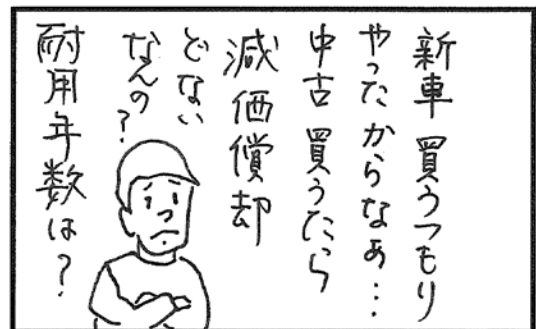 新車買うつもり
やったからなぁ…
中古買うたら
減価償却
どない
なんの?
耐用年数は?